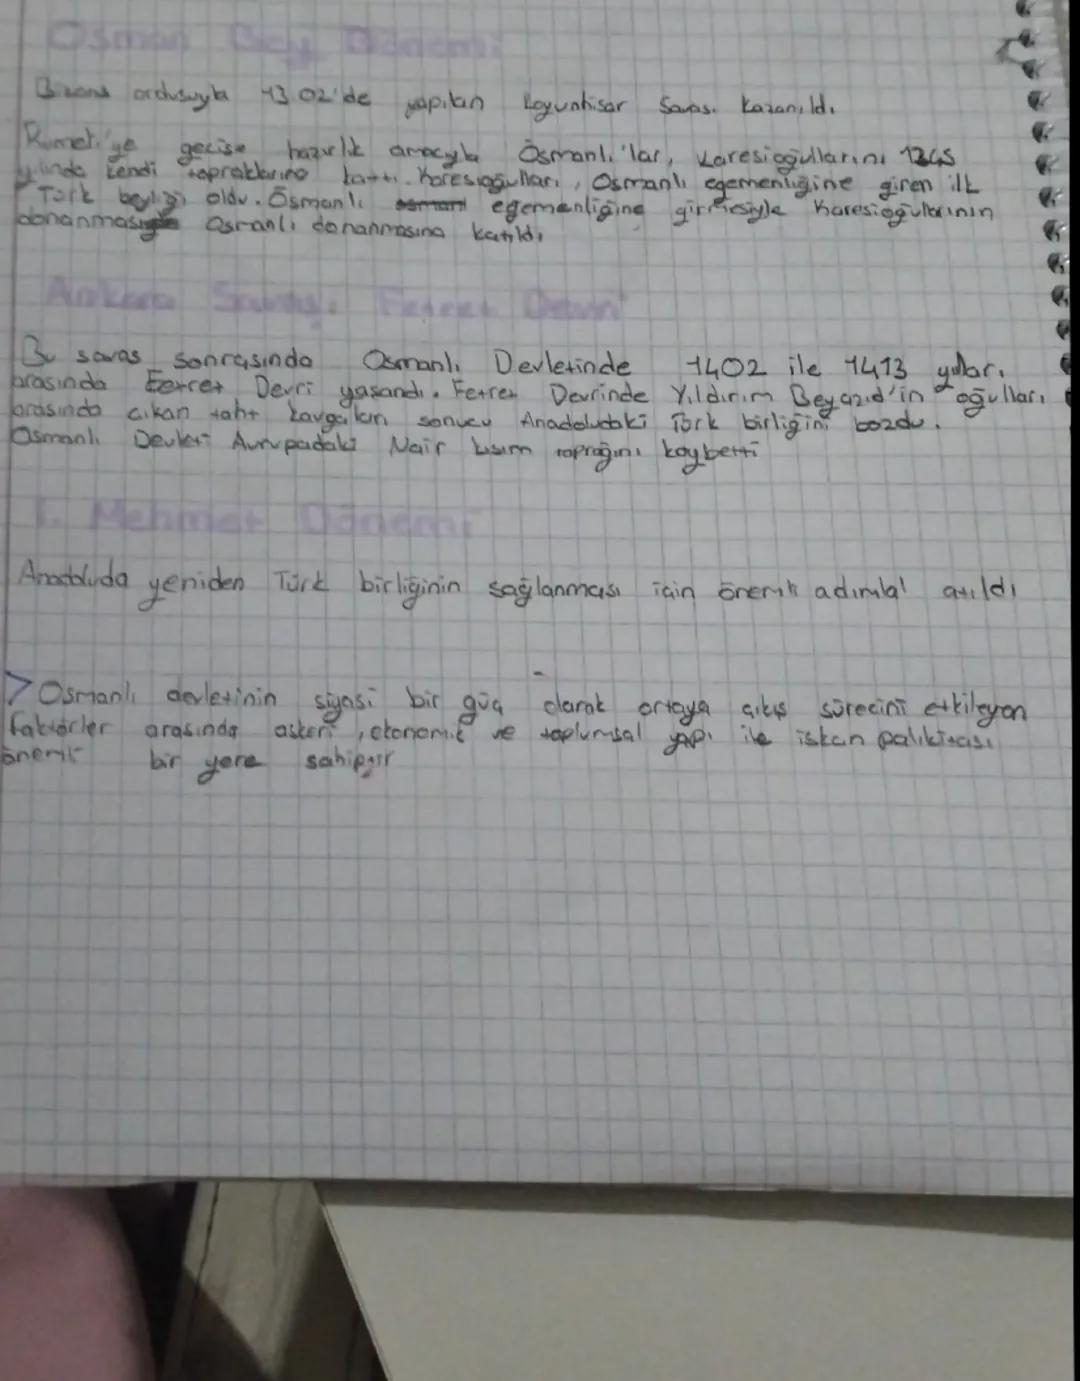 Osman Bey Dönemi
Bizans ordusuyla 1302'de yapılan Koyunhisar Savası kazanıldı.
Rumeli'ye gecise hazırlık amacıyla Osmanlı'lar, Karesioğullarını 1345
yılında kendi topraklarına kattı. Karesioğulları, Osmanlı egemenliğine giren ilk
Türk beyliği oldu. Osmanlı egemenliğine girmesiyle Karesioğullarının
donanması Osmanlı donanmasına katıldı.
Ankara Savaşı, Fetret Devri
Bu savas sonrasında Osmanlı Devletinde 1402 ile 1413 yılları
arasında Fetret Devri yasandı. Fetret Devrinde Yıldırım Beyazıd'in oğulları
arasında cıkan taht kavgaları sonucu Anadoludaki Türk birliğini bozdu.
Osmanlı Devleti Avrupadaki kısım toprağını kaybetti
I. Mehmet Dönemi
Anadoluda yeniden Türk birliğinin sağlanması için önemli adımlal atıldı
> Osmanlı devletinin siyasi bir güç olarak ortaya çıkış sürecini etkileyen
faktörler arasında askeri, ekonomik ve toplumsal yapı ile iskan palikitası
önemli bir yere sahiptir